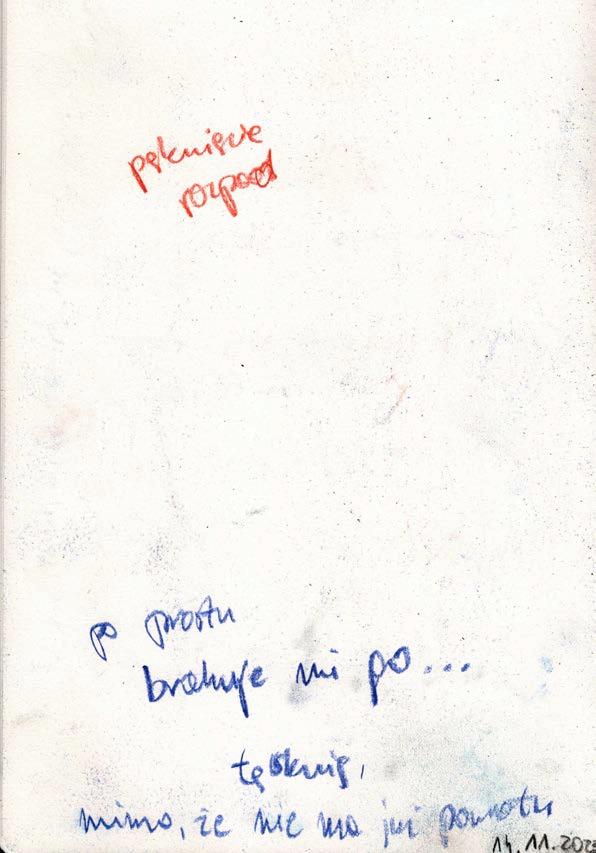 pęknięcie
rozpad
po prostu
brakuje mi po...
tęsknię,
mimo, że nie ma już powrotu
14.11.202